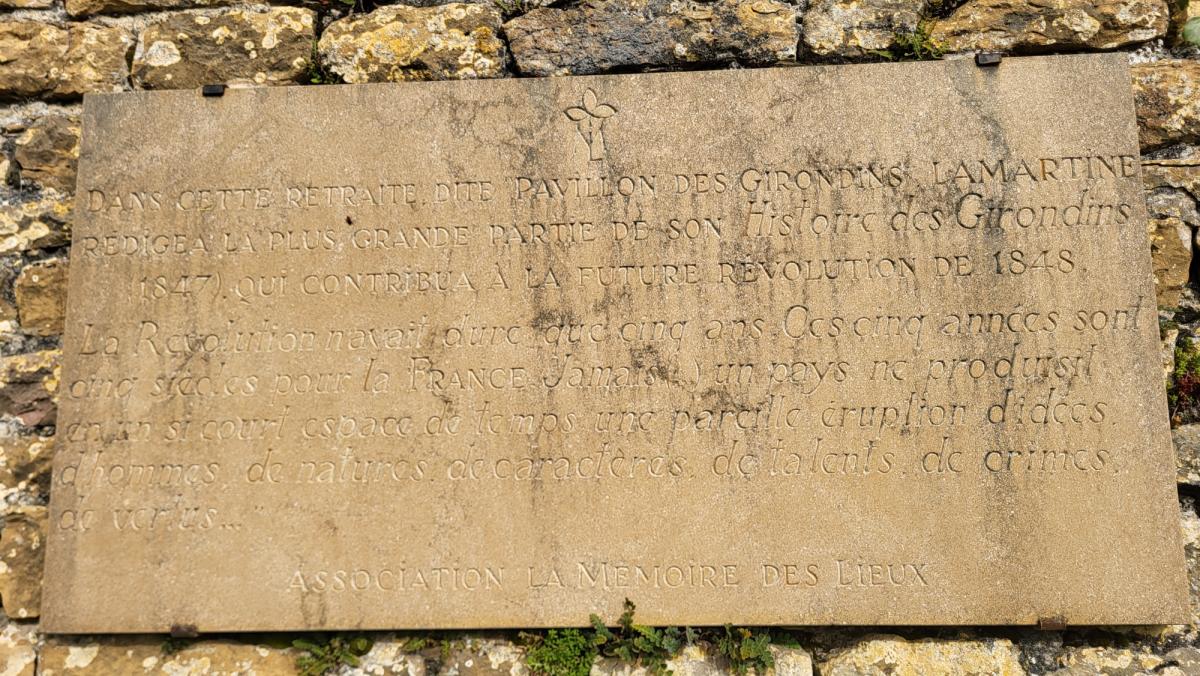 DANS CETTE RETRAITE, DITE PAVILLON DES GIRONDINS, LAMARTINE
RÉDIGEA LA PLUS GRANDE PARTIE DE SON Histoire des Girondins
(1847), QUI CONTRIBUA À LA FUTURE RÉVOLUTION DE 1848.
La Révolution n'avait duré que cinq ans. Ces cinq années sont
cinq siècles pour la FRANCE. Jamais (...) un pays ne produisit
en un si court espace de temps une pareille éruption d'idées,
d'hommes, de natures, de caractères, de talents, de crimes,
de vertus..."
ASSOCIATION LA MÉMOIRE DES LIEUX